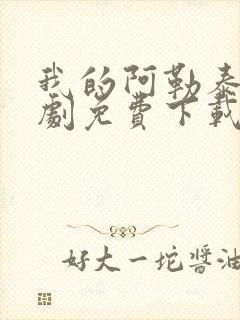 我的阿勒泰
劇免費下載
好大一坨醬油